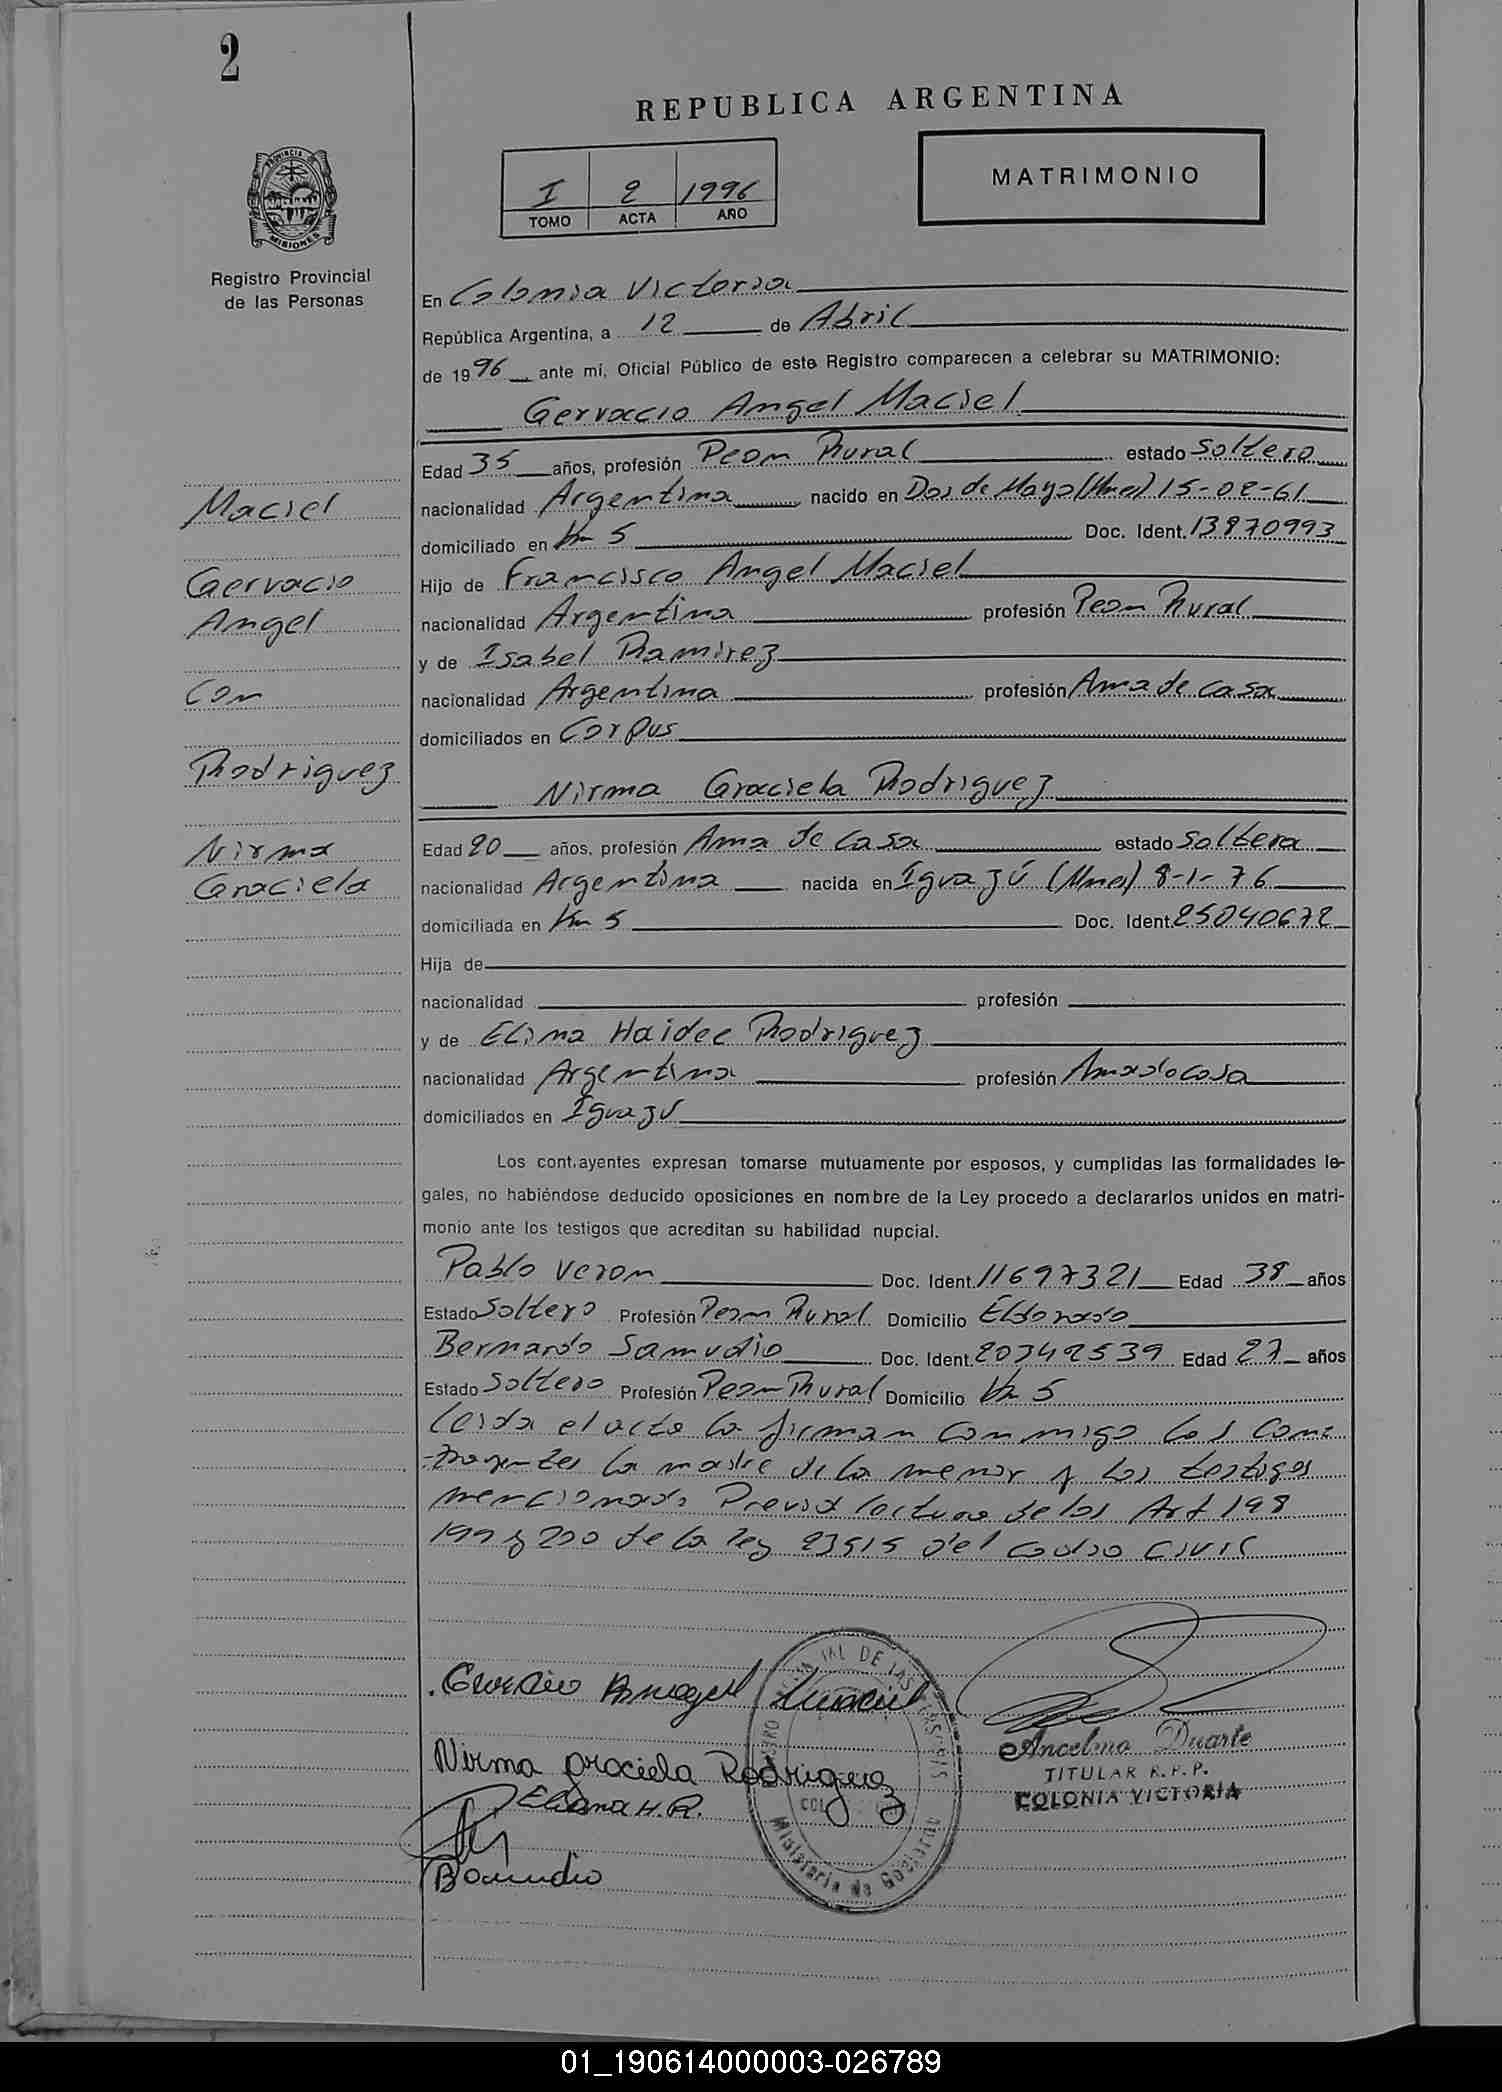 2
REPUBLICA ARGENTINA
MATRIMONIO
I 2 1996
TOMO ACTA AÑO
PROVINCIA DE MISIONES
Registro Provincial
de las Personas
En Colonia Victoria
República Argentina, a 12 de Abril
de 1996 ante mí, Oficial Público de este Registro comparecen a celebrar su MATRIMONIO:
Gervacio Angel Maciel
Edad 35 años, profesión Peon Rural estado Soltero
Maciel
nacionalidad Argentina nacido en Dos de Mayo (Mnes) 15-02-61
domiciliado en Km 5 Doc. Ident. 13870993
Gervacio
Hijo de Francisco Angel Maciel
Angel
nacionalidad Argentina profesión Peon Rural
y de Isabel Ramirez
Con
nacionalidad Argentina profesión Ama de casa
domiciliados en Corpus
Rodriguez
Nirma Graciela Rodriguez
Nirma
Edad 20 años, profesión Ama de Casa estado Soltera
Graciela
nacionalidad Argentina nacida en Iguazú (Mnes) 8-1-76
domiciliada en Km 5 Doc. Ident. 25040672
Hija de
nacionalidad profesión
y de Elina Haidee Rodriguez
nacionalidad Argentina profesión Ama de casa
domiciliados en Iguazú
Los cont.ayentes expresan tomarse mutuamente por esposos, y cumplidas las formalidades le-
gales, no habiéndose deducido oposiciones en nombre de la Ley procedo a declararlos unidos en matri-
monio ante los testigos que acreditan su habilidad nupcial.
Pablo Veron Doc. Ident. 11697321 Edad 38 años
Estado Soltero Profesión Peon Rural Domicilio Eldorado
Bernardo Samudio Doc. Ident. 20342539 Edad 27 años
Estado Soltero Profesión Peon Rural Domicilio Km 5
Leida el acta la firman conmigo los Cont
trayentes la madre de la menor y los testigos
mencionado Previa lectura de los Art 198
199 y 200 de la ley 23515 del codigo Civil
Angel Maciel
Nirma graciela Rodriguez
H. R.
Ancelmo Duarte
TITULAR R.P.P.
COLONIA VICTORIA
Ministerio de Gobierno
01_190614000003-026789